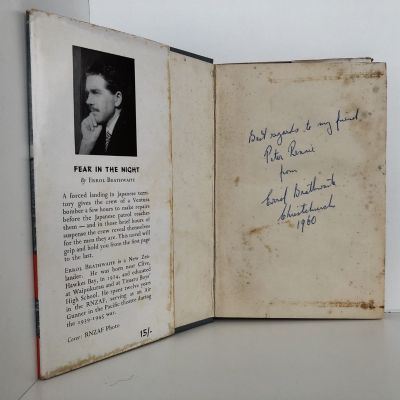 FEAR IN THE NIGHT
By ERROL BRATHWAITE
A forced landing in Japanese terri-
tory gives the crew of a Ventura
bomber a few hours to make repairs
before the Japanese patrol reaches
them — and in those brief hours of
suspense the crew reveal themselves
for the men they are. This novel will
grip and hold you from the first page
to the last.
ERROL BRATHWAITE is a New Zea-
lander. He was born near Clive,
Hawkes Bay, in 1924, and educated
at Waipukurau and at Timaru Boys'
High School. He spent twelve years
in the RNZAF, serving as an Air
Gunner in the Pacific theatre during
the 1939-1945 war.
Cover: RNZAF Photo
15/-
Best regards to my friend
Peter Rennie
from
Errol Brathwaite
Christchurch
1960